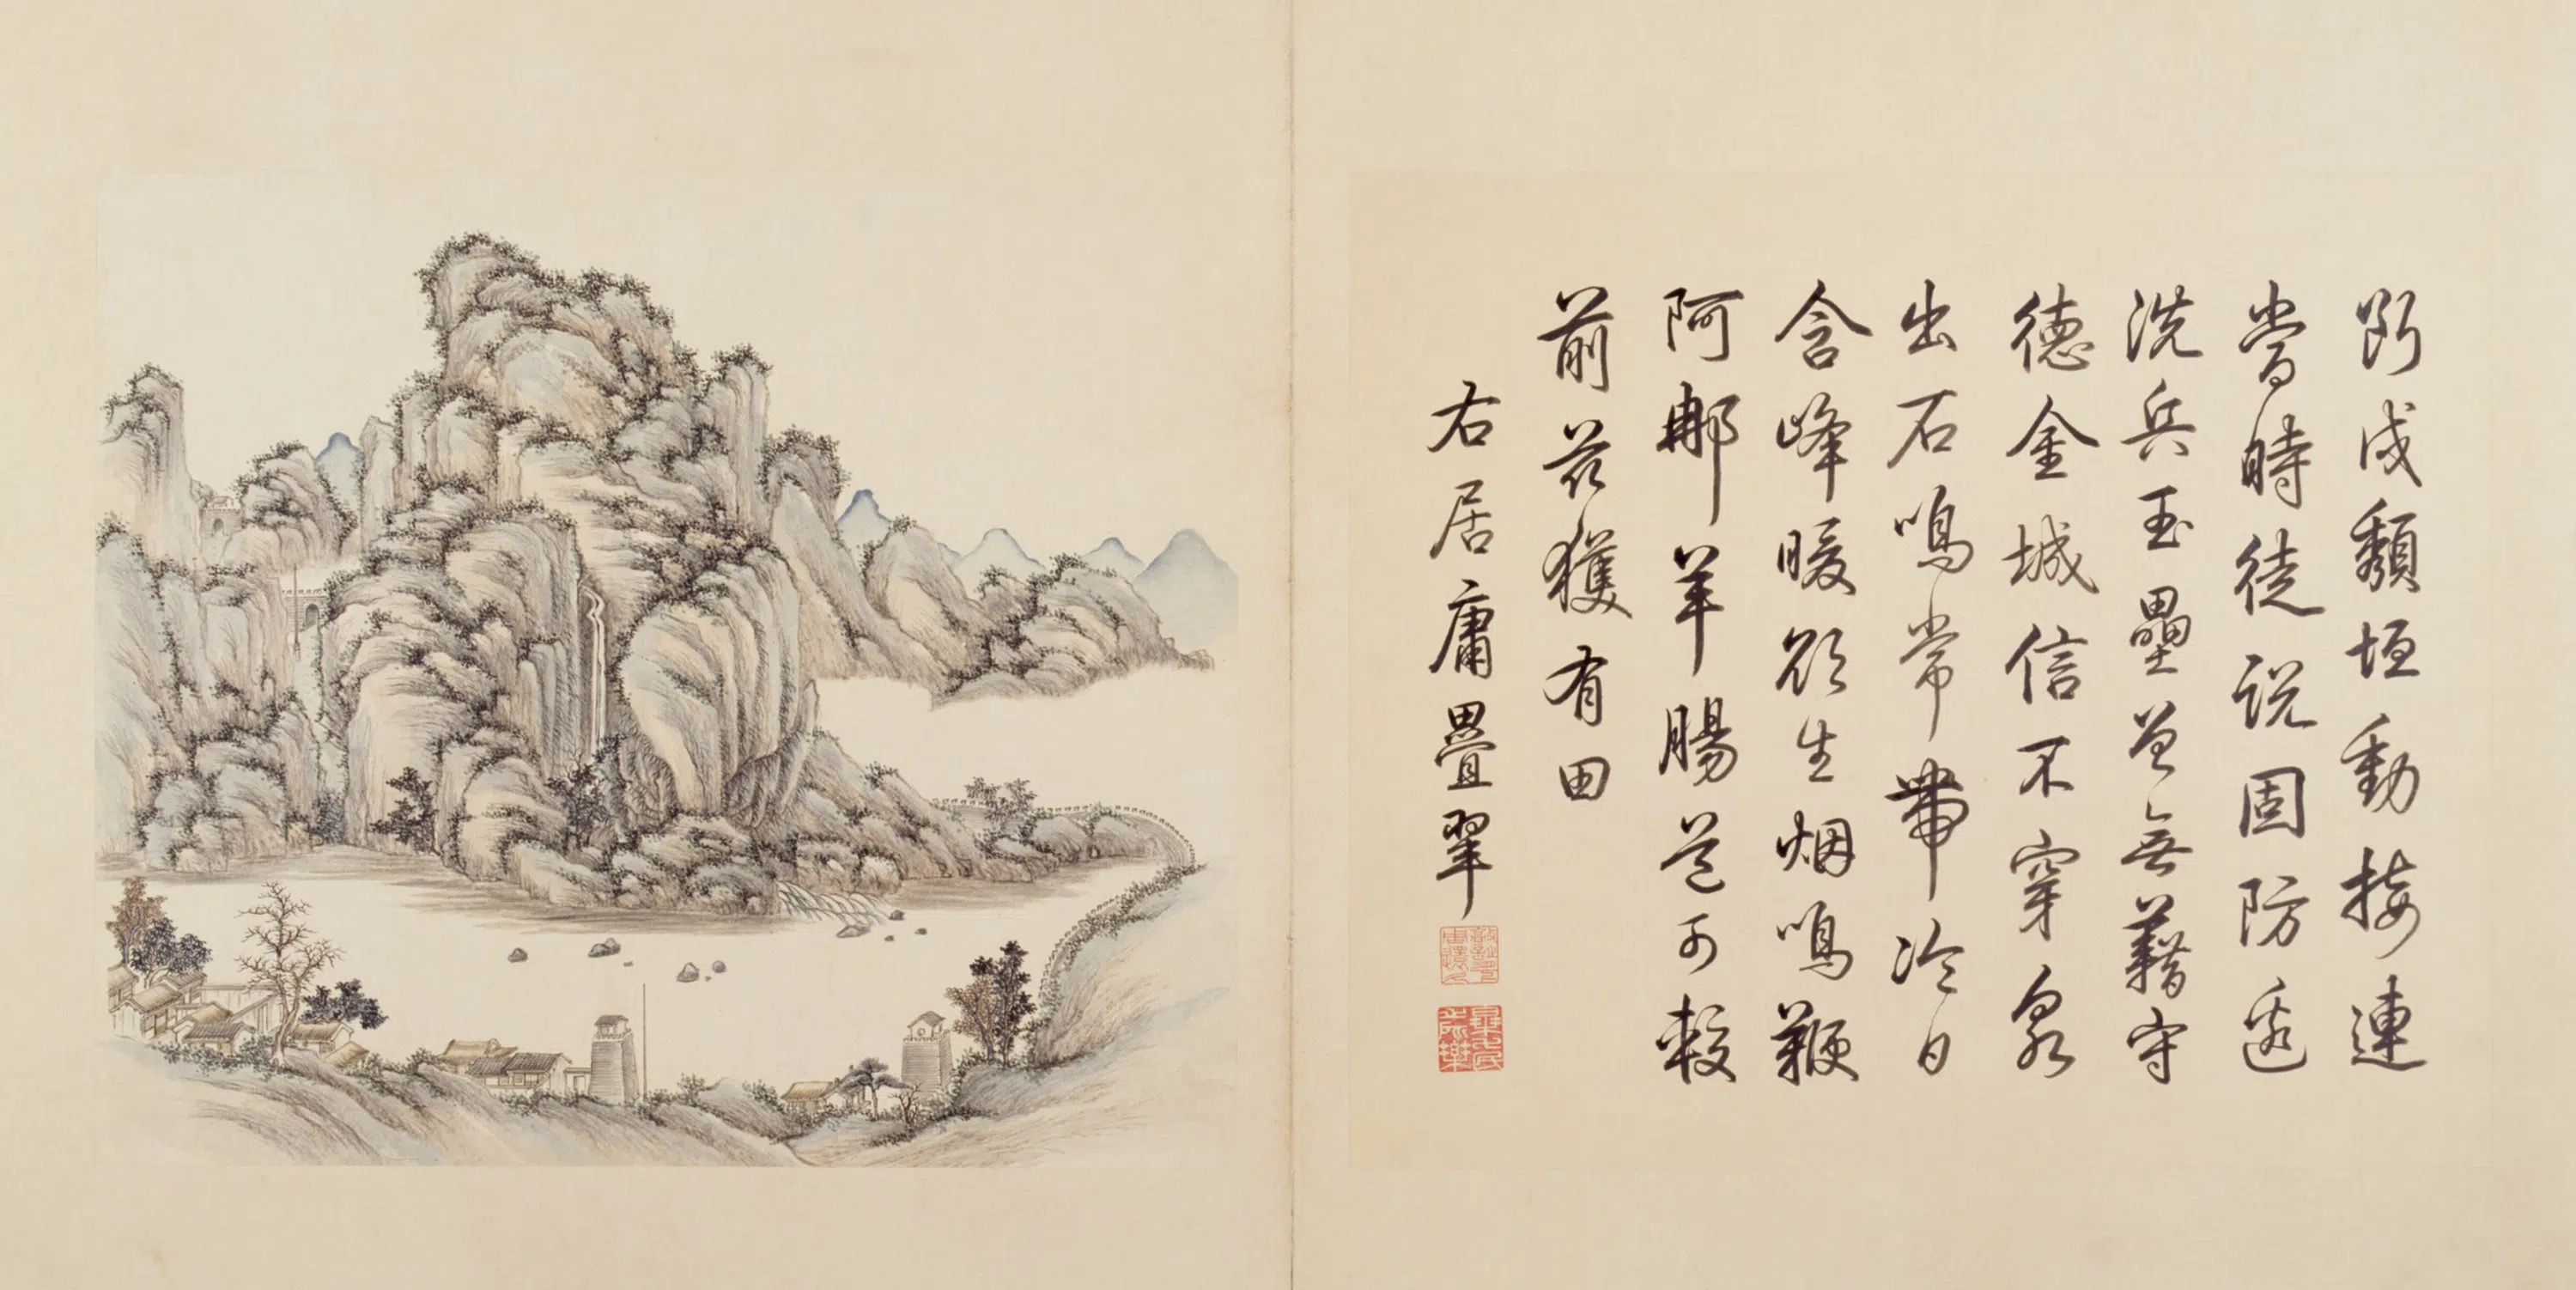 斷戍頹垣動接連
當時徒説固防邊
洗兵玉壘曾無藉守
德金城信不穿泉
出石鳴常帶冷日
含峰暖欲生烟鳴鞭
阿那羊腸道可較
前茲獲有田
右居庸疊翠